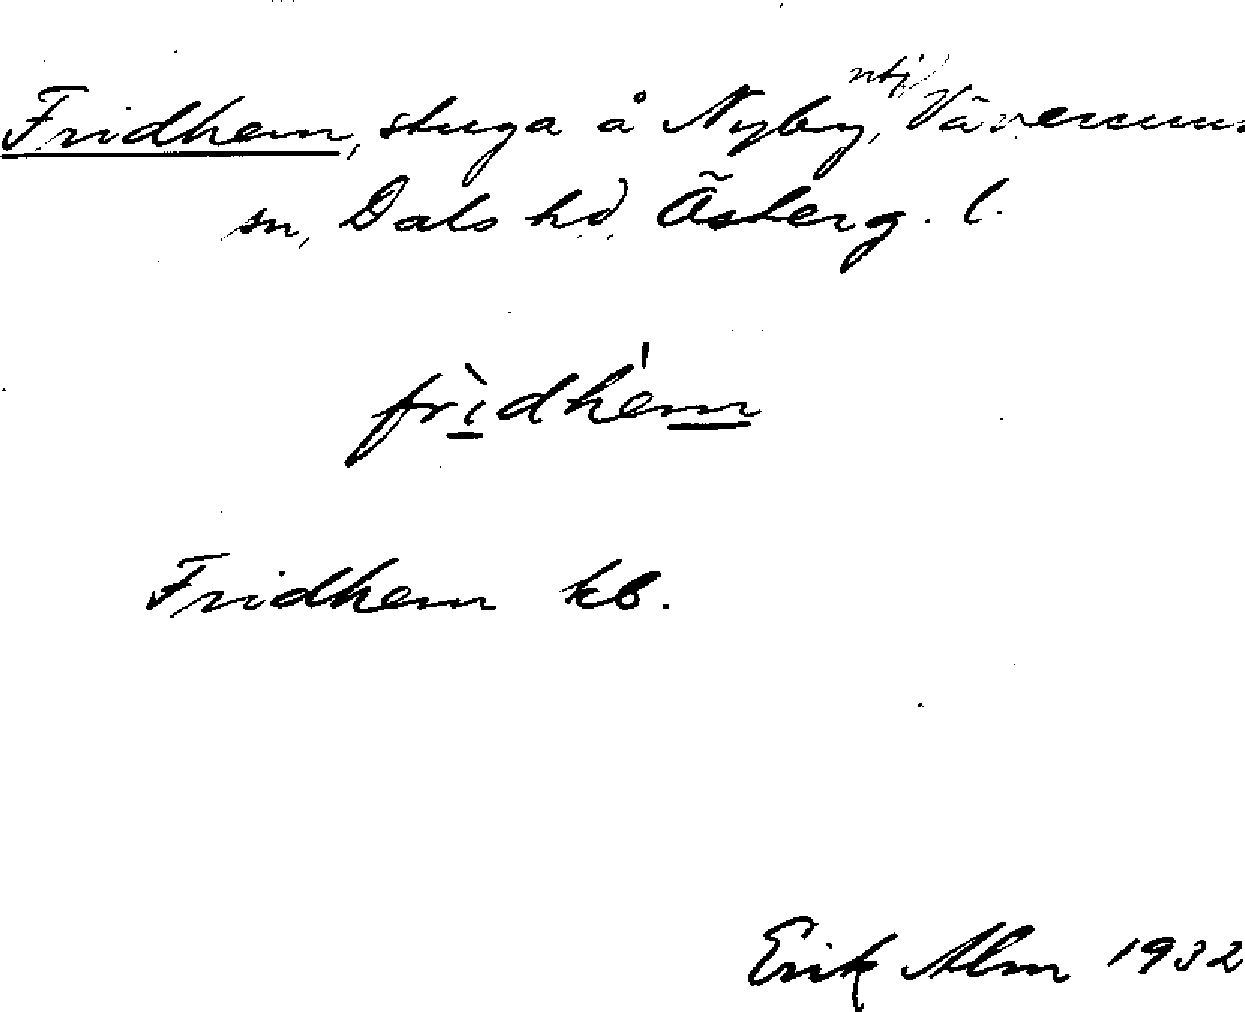 Fridhem, stuga å Nyby, ntj Väversunda
sn, Dals hd, Österg. l.
frìdhem
Fridhem kb.
Erik Alm 1932